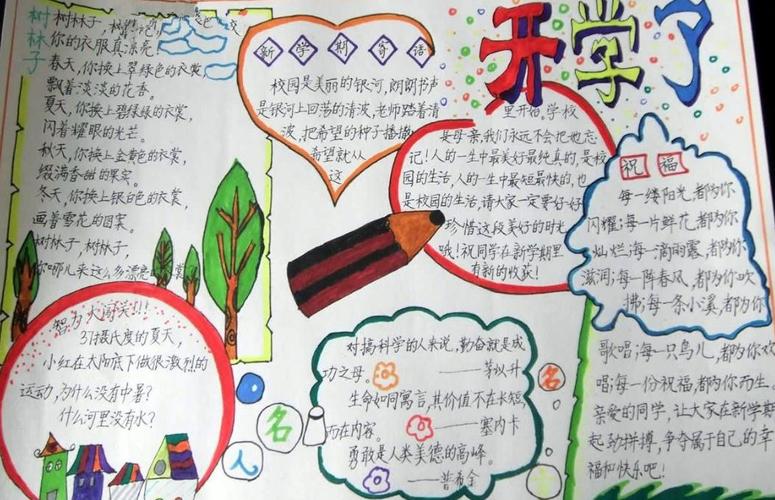 开学了
树林子
树林子，树林子，
你的衣服真漂亮
春天，你换上翠绿色的衣裳，
飘着淡淡的花香。
夏天，你换上碧绿绿的衣裳，
闪着耀眼的光芒。
秋天，你换上金黄色的衣裳，
缀满香甜的果实。
冬天，你换上银白色的衣裳，
画着雪花的图案。
树林子，树林子，
你哪儿来这么多漂亮的
新学期寄语
校园是美丽的银河，朗朗书声
是银河上回荡的清波，老师踏着清
波，把希望的种子播撒
希望就从
这
里开始，学校
是母亲，我们永远不会把她忘
记！人的一生中最美好最纯真的，是校
园的生活，人的一生中最短最快的，也
是校园的生活，请大家一定要好好
珍惜这段美好的时光
哦！祝同学在新学期里
有新的收获！
祝福
每一缕阳光，都为你
闪耀；每一片鲜花，都为你
灿烂；每一滴雨露，都为你
滋润；每一阵春风，都为你吹
拂；每一条小溪，都为你
歌唱；每一只鸟儿，都为你欢
唱；每一份祝福，都为你而生。
亲爱的同学，让大家在新学期
起劲拼搏，争夺属于自己的幸
福和快乐吧！
智力大闯关！！！
37摄氏度的夏天，
小红在太阳底下做很激烈的
运动，为什么没有中暑？
什么河里没有水？
名人名言
对搞科学的人来说，勤奋就是成
功之母。——茅以升
生命如同寓言，其价值不在长短，
而在内容。——塞内卡
勇敢是人类美德的高峰。
——普希金